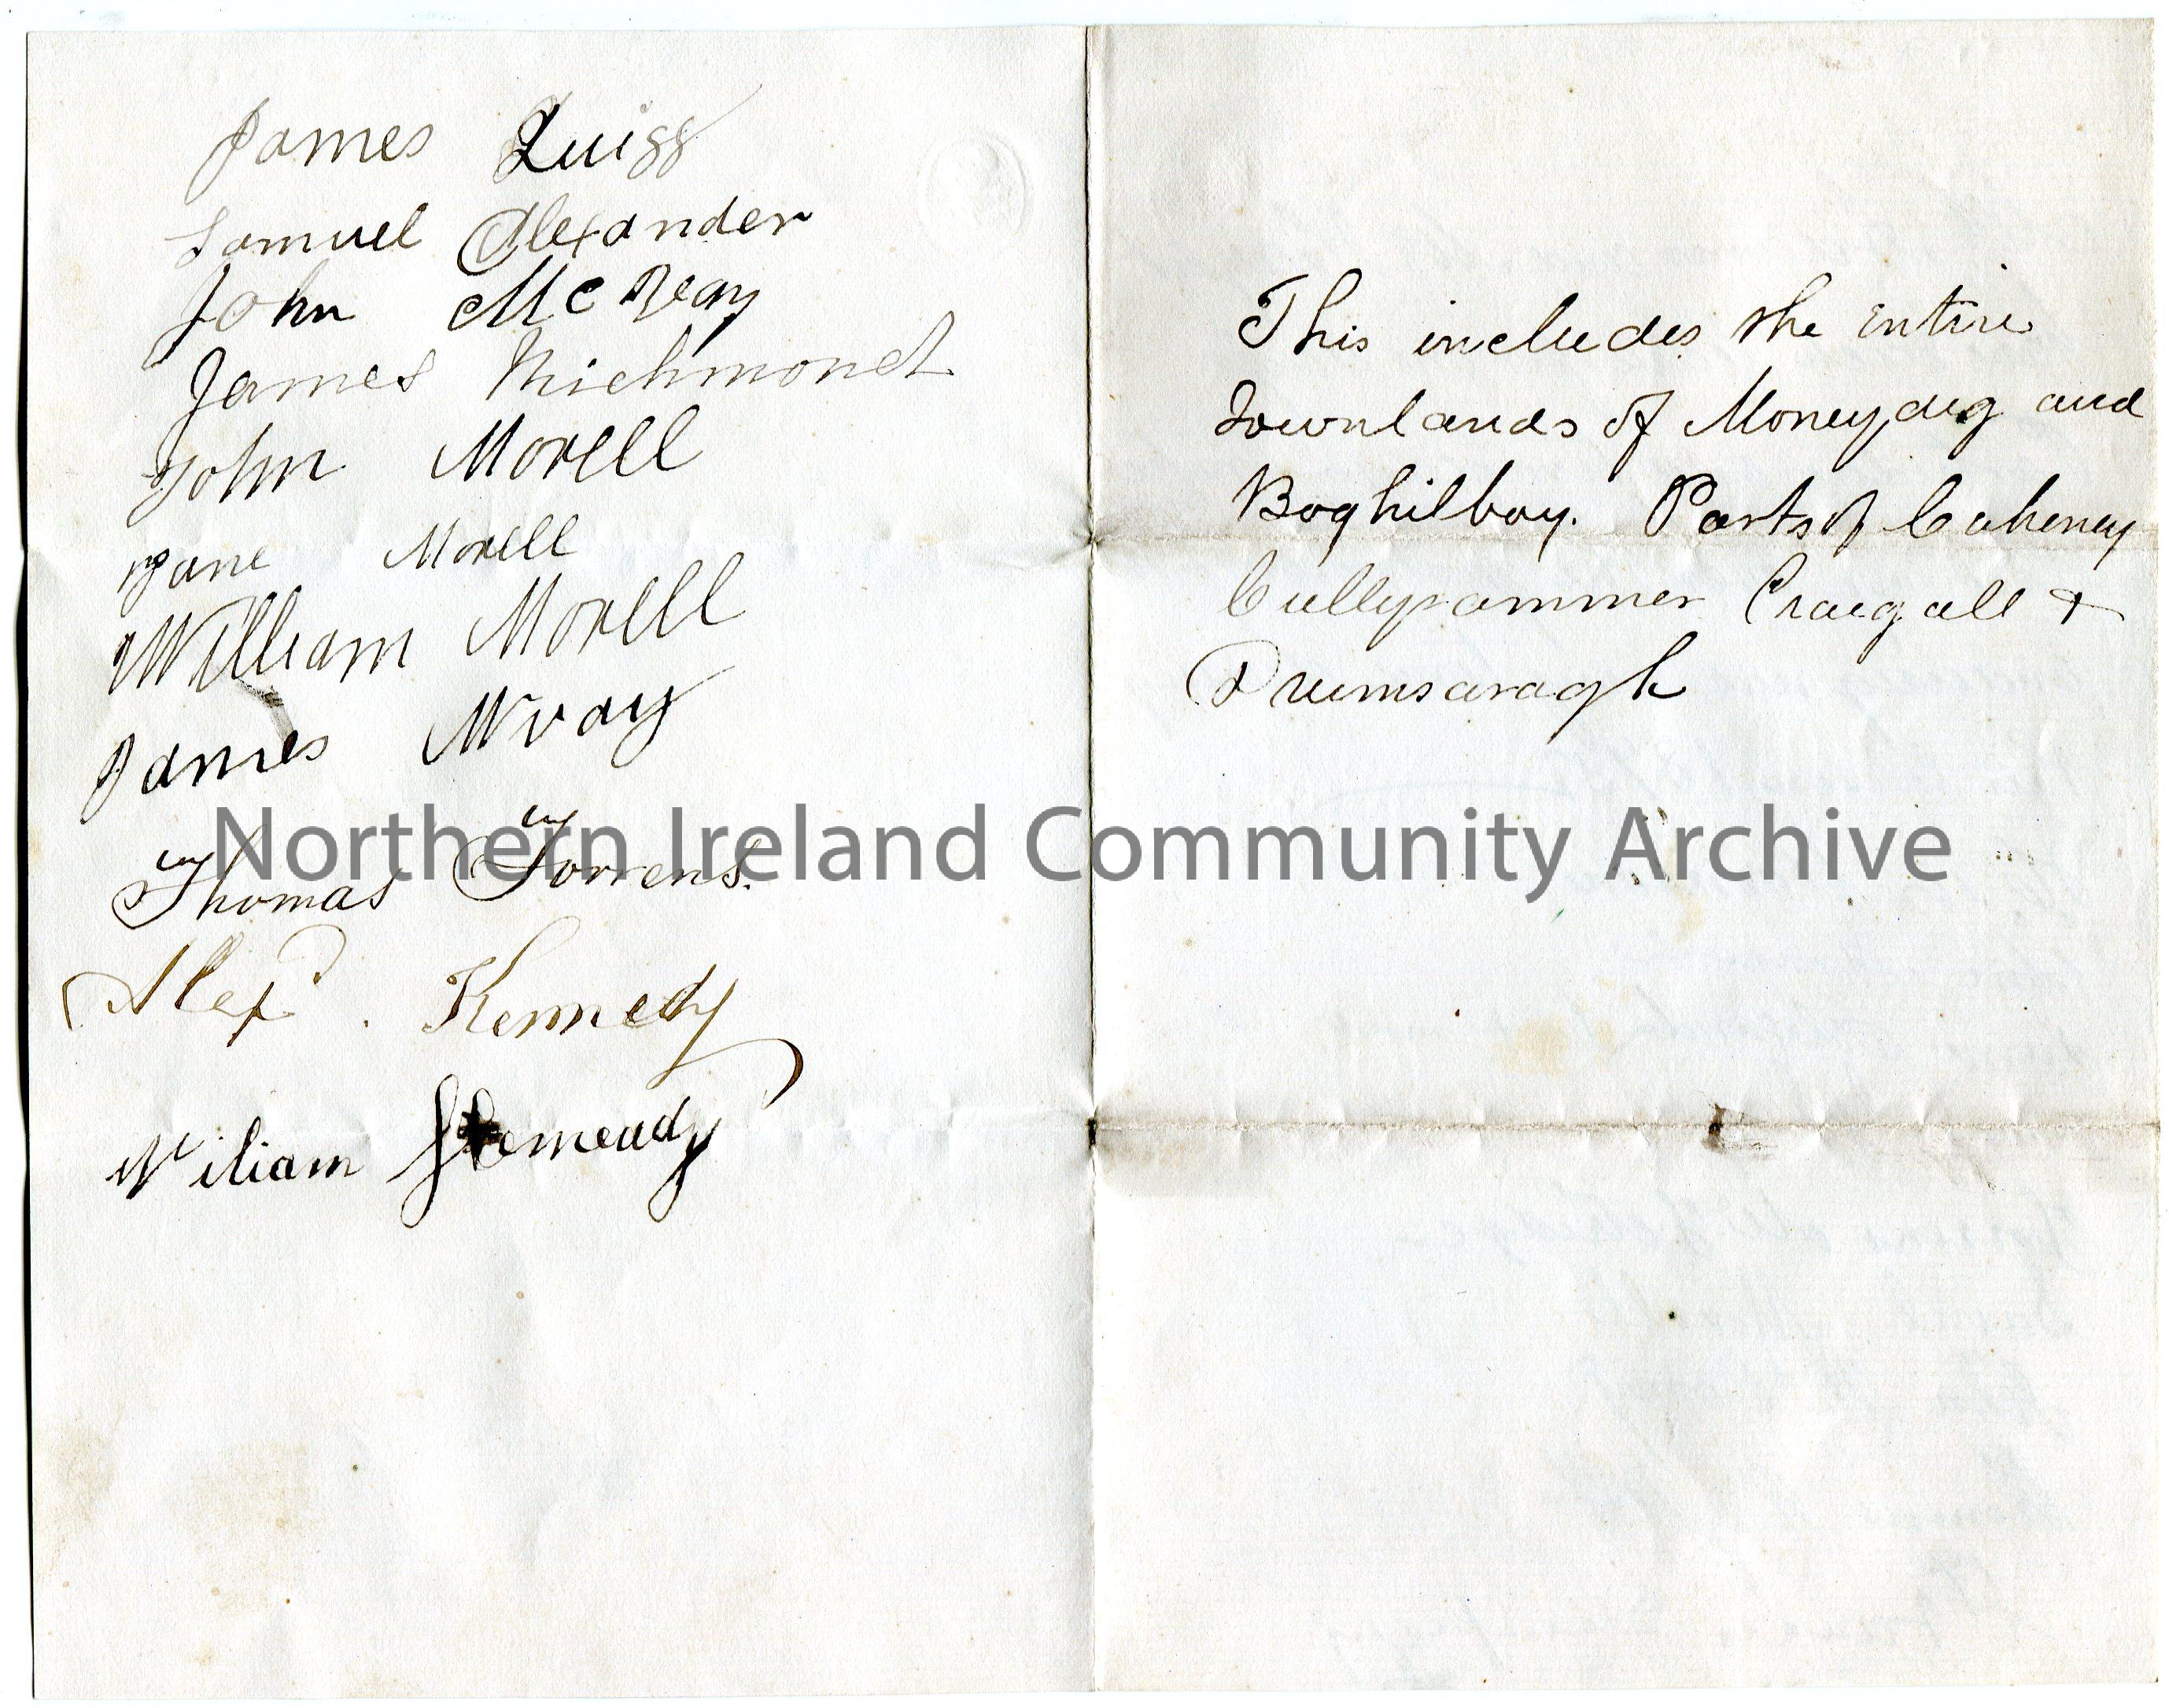 James Quigg
Samuel Alexander
John McVeay
James Richmond
John Morell
Jane Morell
William Morell
James Mvay
Thomas Torrens.
Alexr. Kennedy
Wiliam
This includes the entire
Townlands of Moneydig and
Boghilboy. Parts of Caheney
Cullyrammer Craigall +
Drumsaragh
Northern Ireland Community Archive